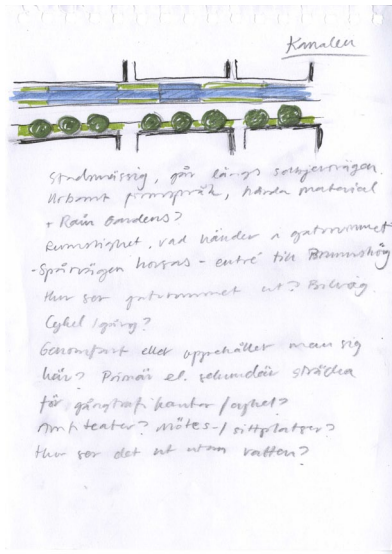 Kanalen
Stadsmässig, går längs solbjersvägen.
Urbant formspråk, hårda material
+ Rain Gardens?
Rumslighet, vad händer i gaturummet
- Spårvägen korsas - entré till Brunnshög
Hur ser gaturummet ut? Bilväg.
Cykel/gång?
Genomfart eller uppehåller man sig
här? Primär el. sekundär sträcka
för gångtrafikanter/cykel?
Amfiteater? Mötes-/sittplatser?
Hur ser det ut utan vatten?